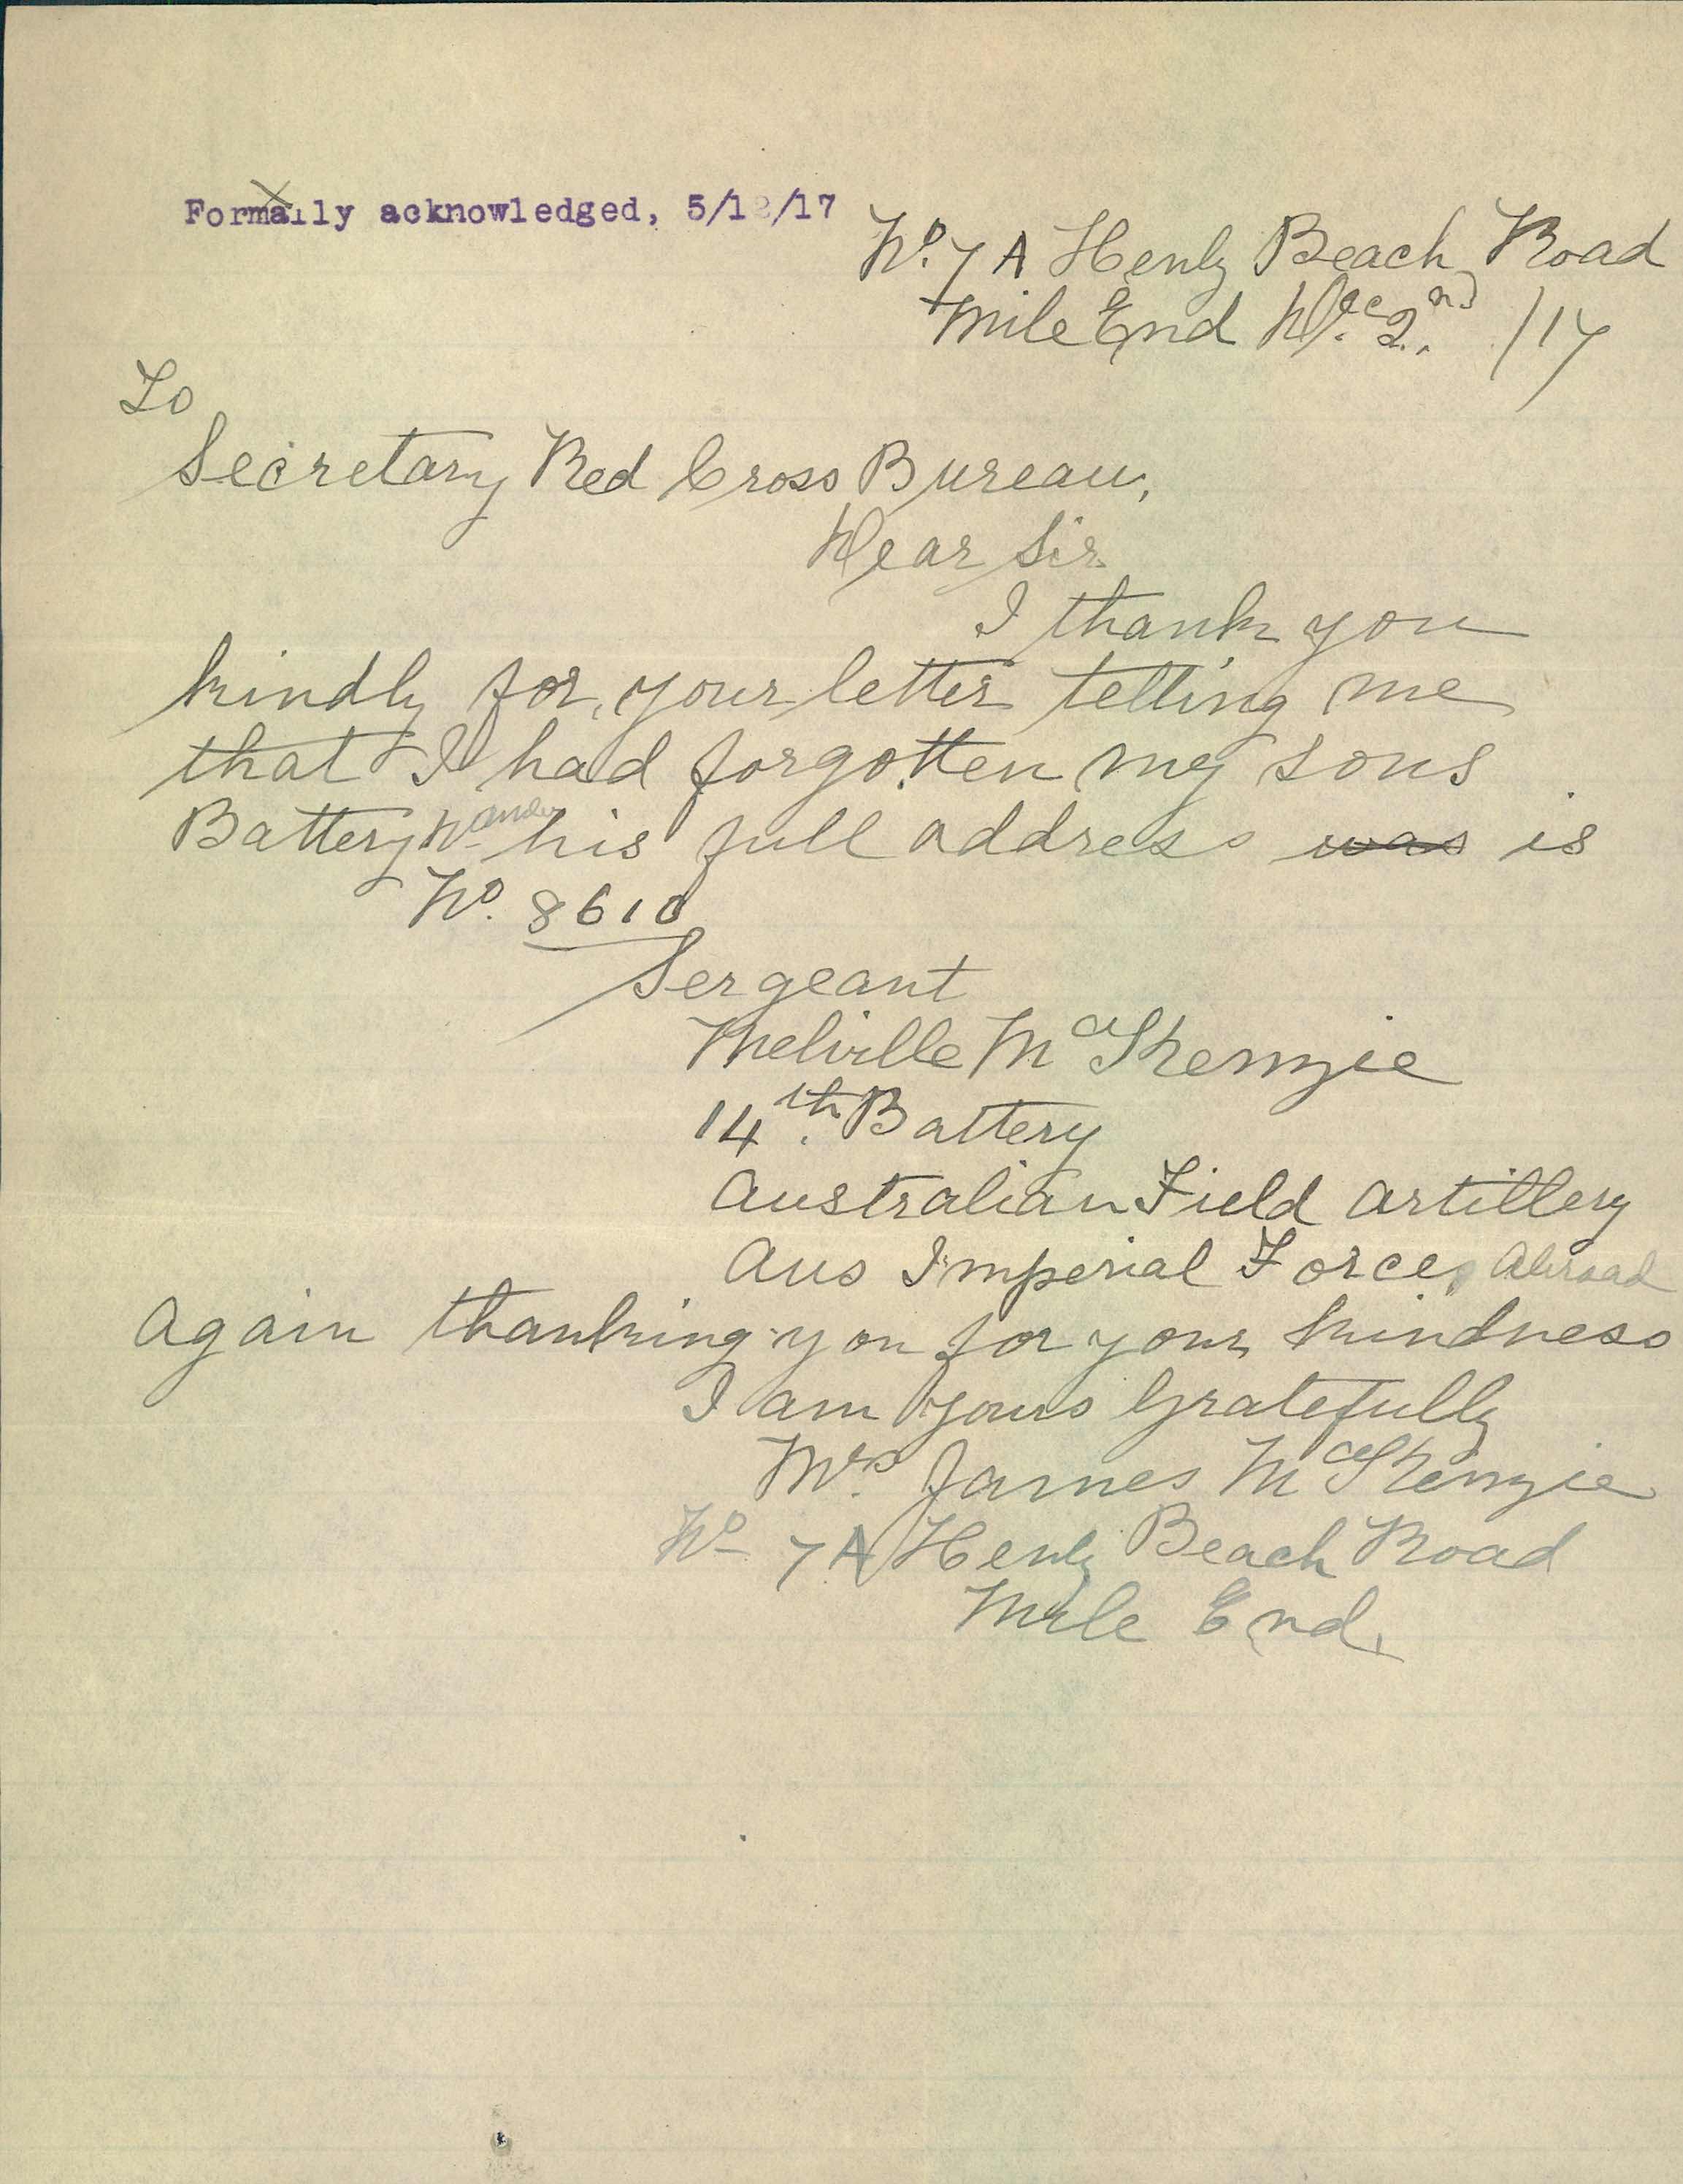 Formally acknowledged, 5/12/17
No. 7A Henly Beach Road
Mile End Dec 2nd. /17
To
Secretary Red Cross Bureau,
Dear Sir
I thank you
kindly for your letter telling me
that I had forgotten my sons
Battery No and his full address was is
No. 8610
Sergeant
Melville McKenzie
14th. Battery
Australian Field Artillery
Aus Imperial Force, Abroad
Again thanking you for your kindness
I am yours Gratefully
Mrs. James McKenzie
No 7A Henly Beach Road
Mile End.